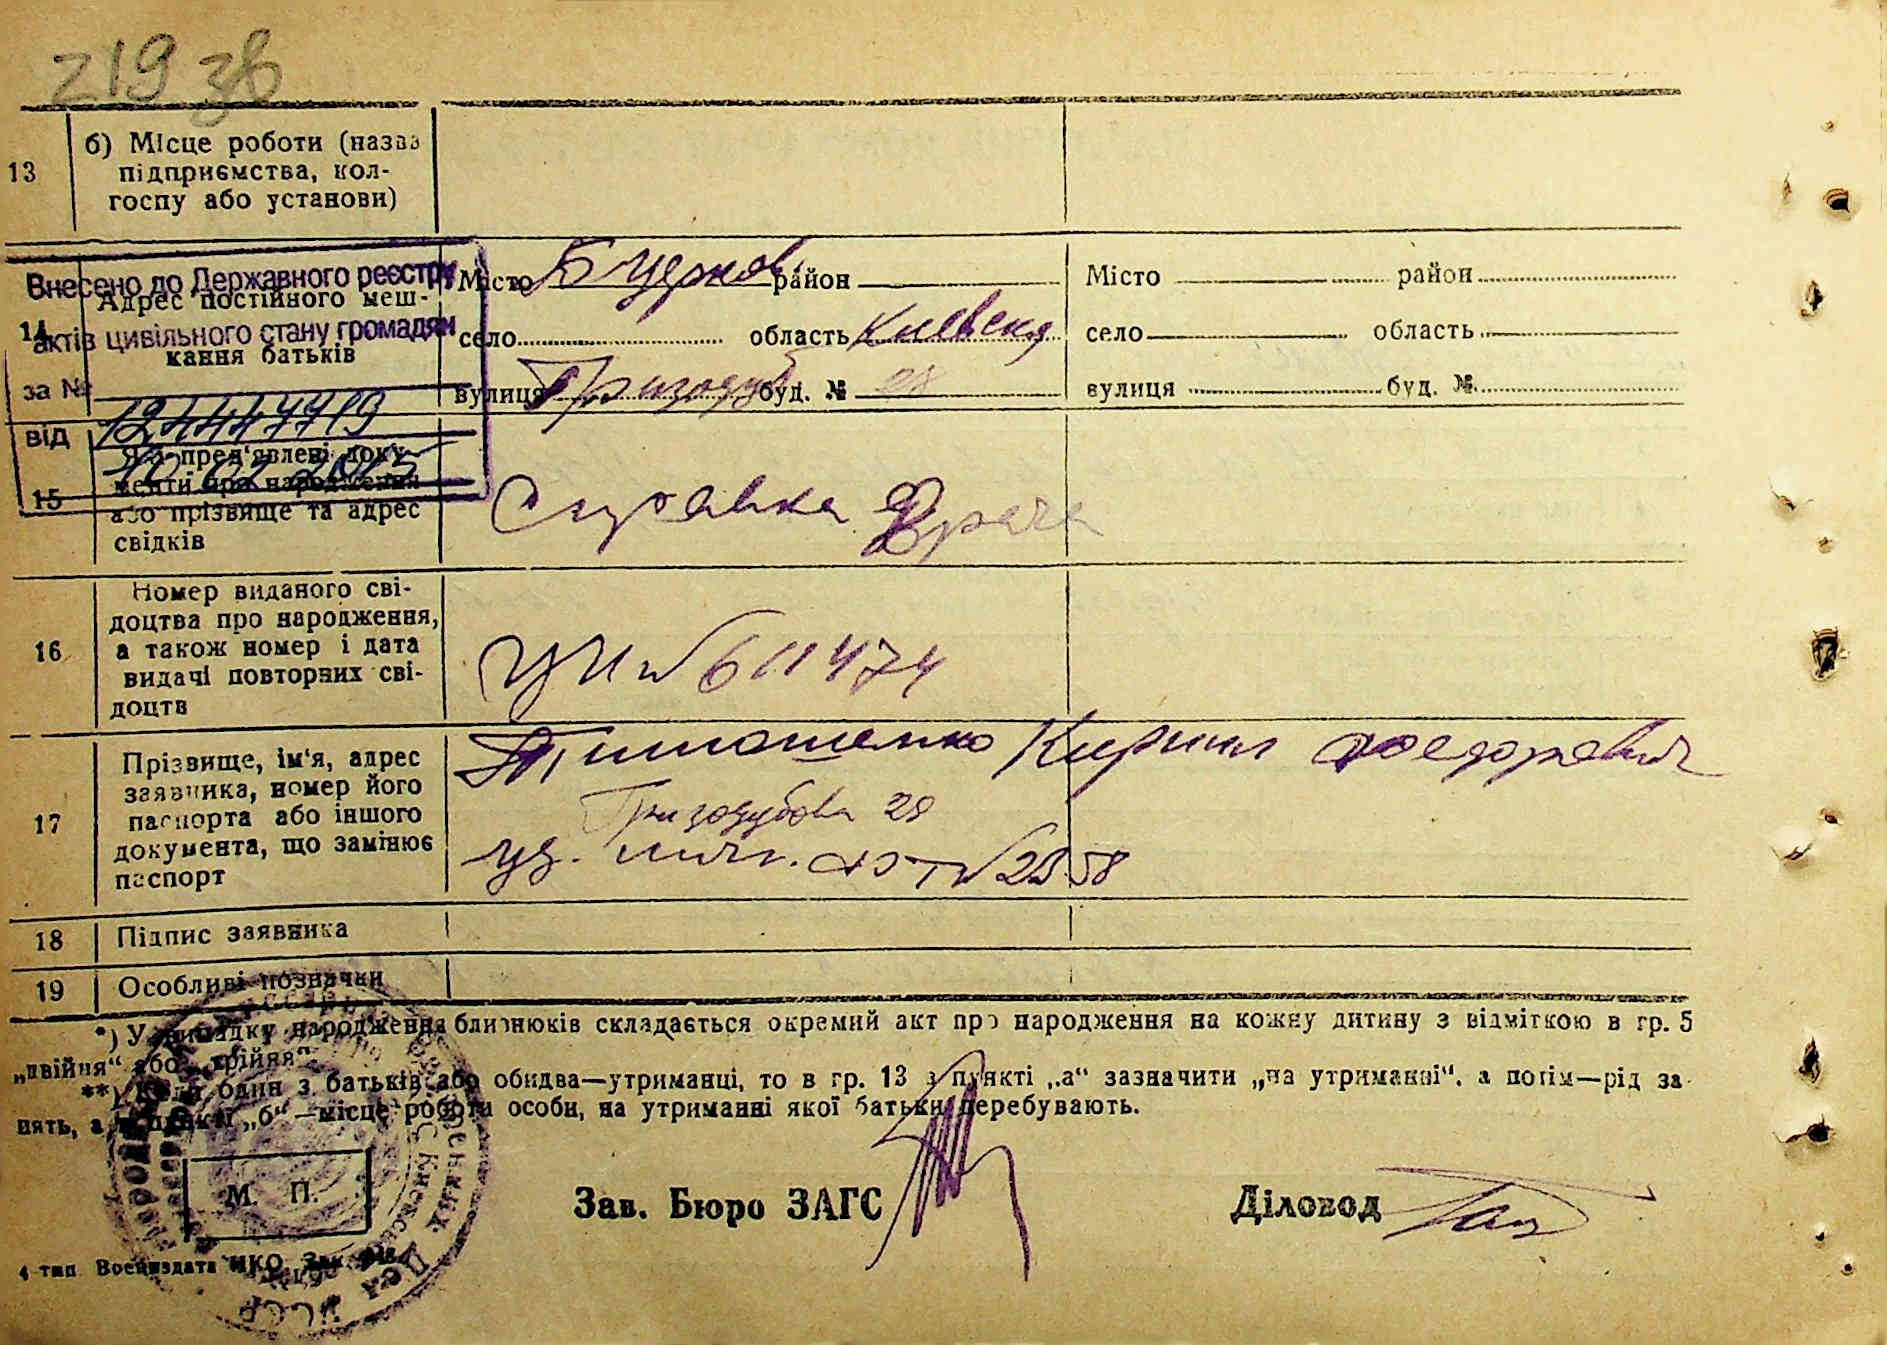 219 зв
13
б) Місце роботи (назва
підприємства, кол-
госпу або установи)
Внесено до Державного реєстру
актів цивільного стану громадян
за №
від 10 02 2015
14
Адрес постійного меш-
кання батьків
Місто Б Церков район
село область Киевская
вулиця буд. № 28
Місто район
село область
вулиця буд. №
15
Які пред'явлені доку-
менти про народження
або прізвище та адрес
свідків
Справка Врача
16
Номер виданого сві-
доцтва про народження,
а також номер і дата
видачі повторних сві-
доцтв
№ 611474
17
Прізвище, ім'я, адрес
заявника, номер його
паспорта або іншого
документа, що замінює
паспорт
Тимошенко Кирил Федорович
Гризодубова 28
уд. личн.
18 Підпис заявника
19 Особливі позначки
*) У випадку народження близнюків складається окремий акт про народження на кожну дитину з відміткою в гр. 5
„двійня“ або „трійня“
**) Коли один з батьків або обидва—утриманці, то в гр. 13 в пункті „а“ зазначити „на утриманні“, а потім—рід за-
нять, а в пункті „б“—місце роботи особи, на утриманні якої батьки перебувають.
М. П.
Зав. Бюро ЗАГС
Діловод
4 тип Воениздата НКО Зак.